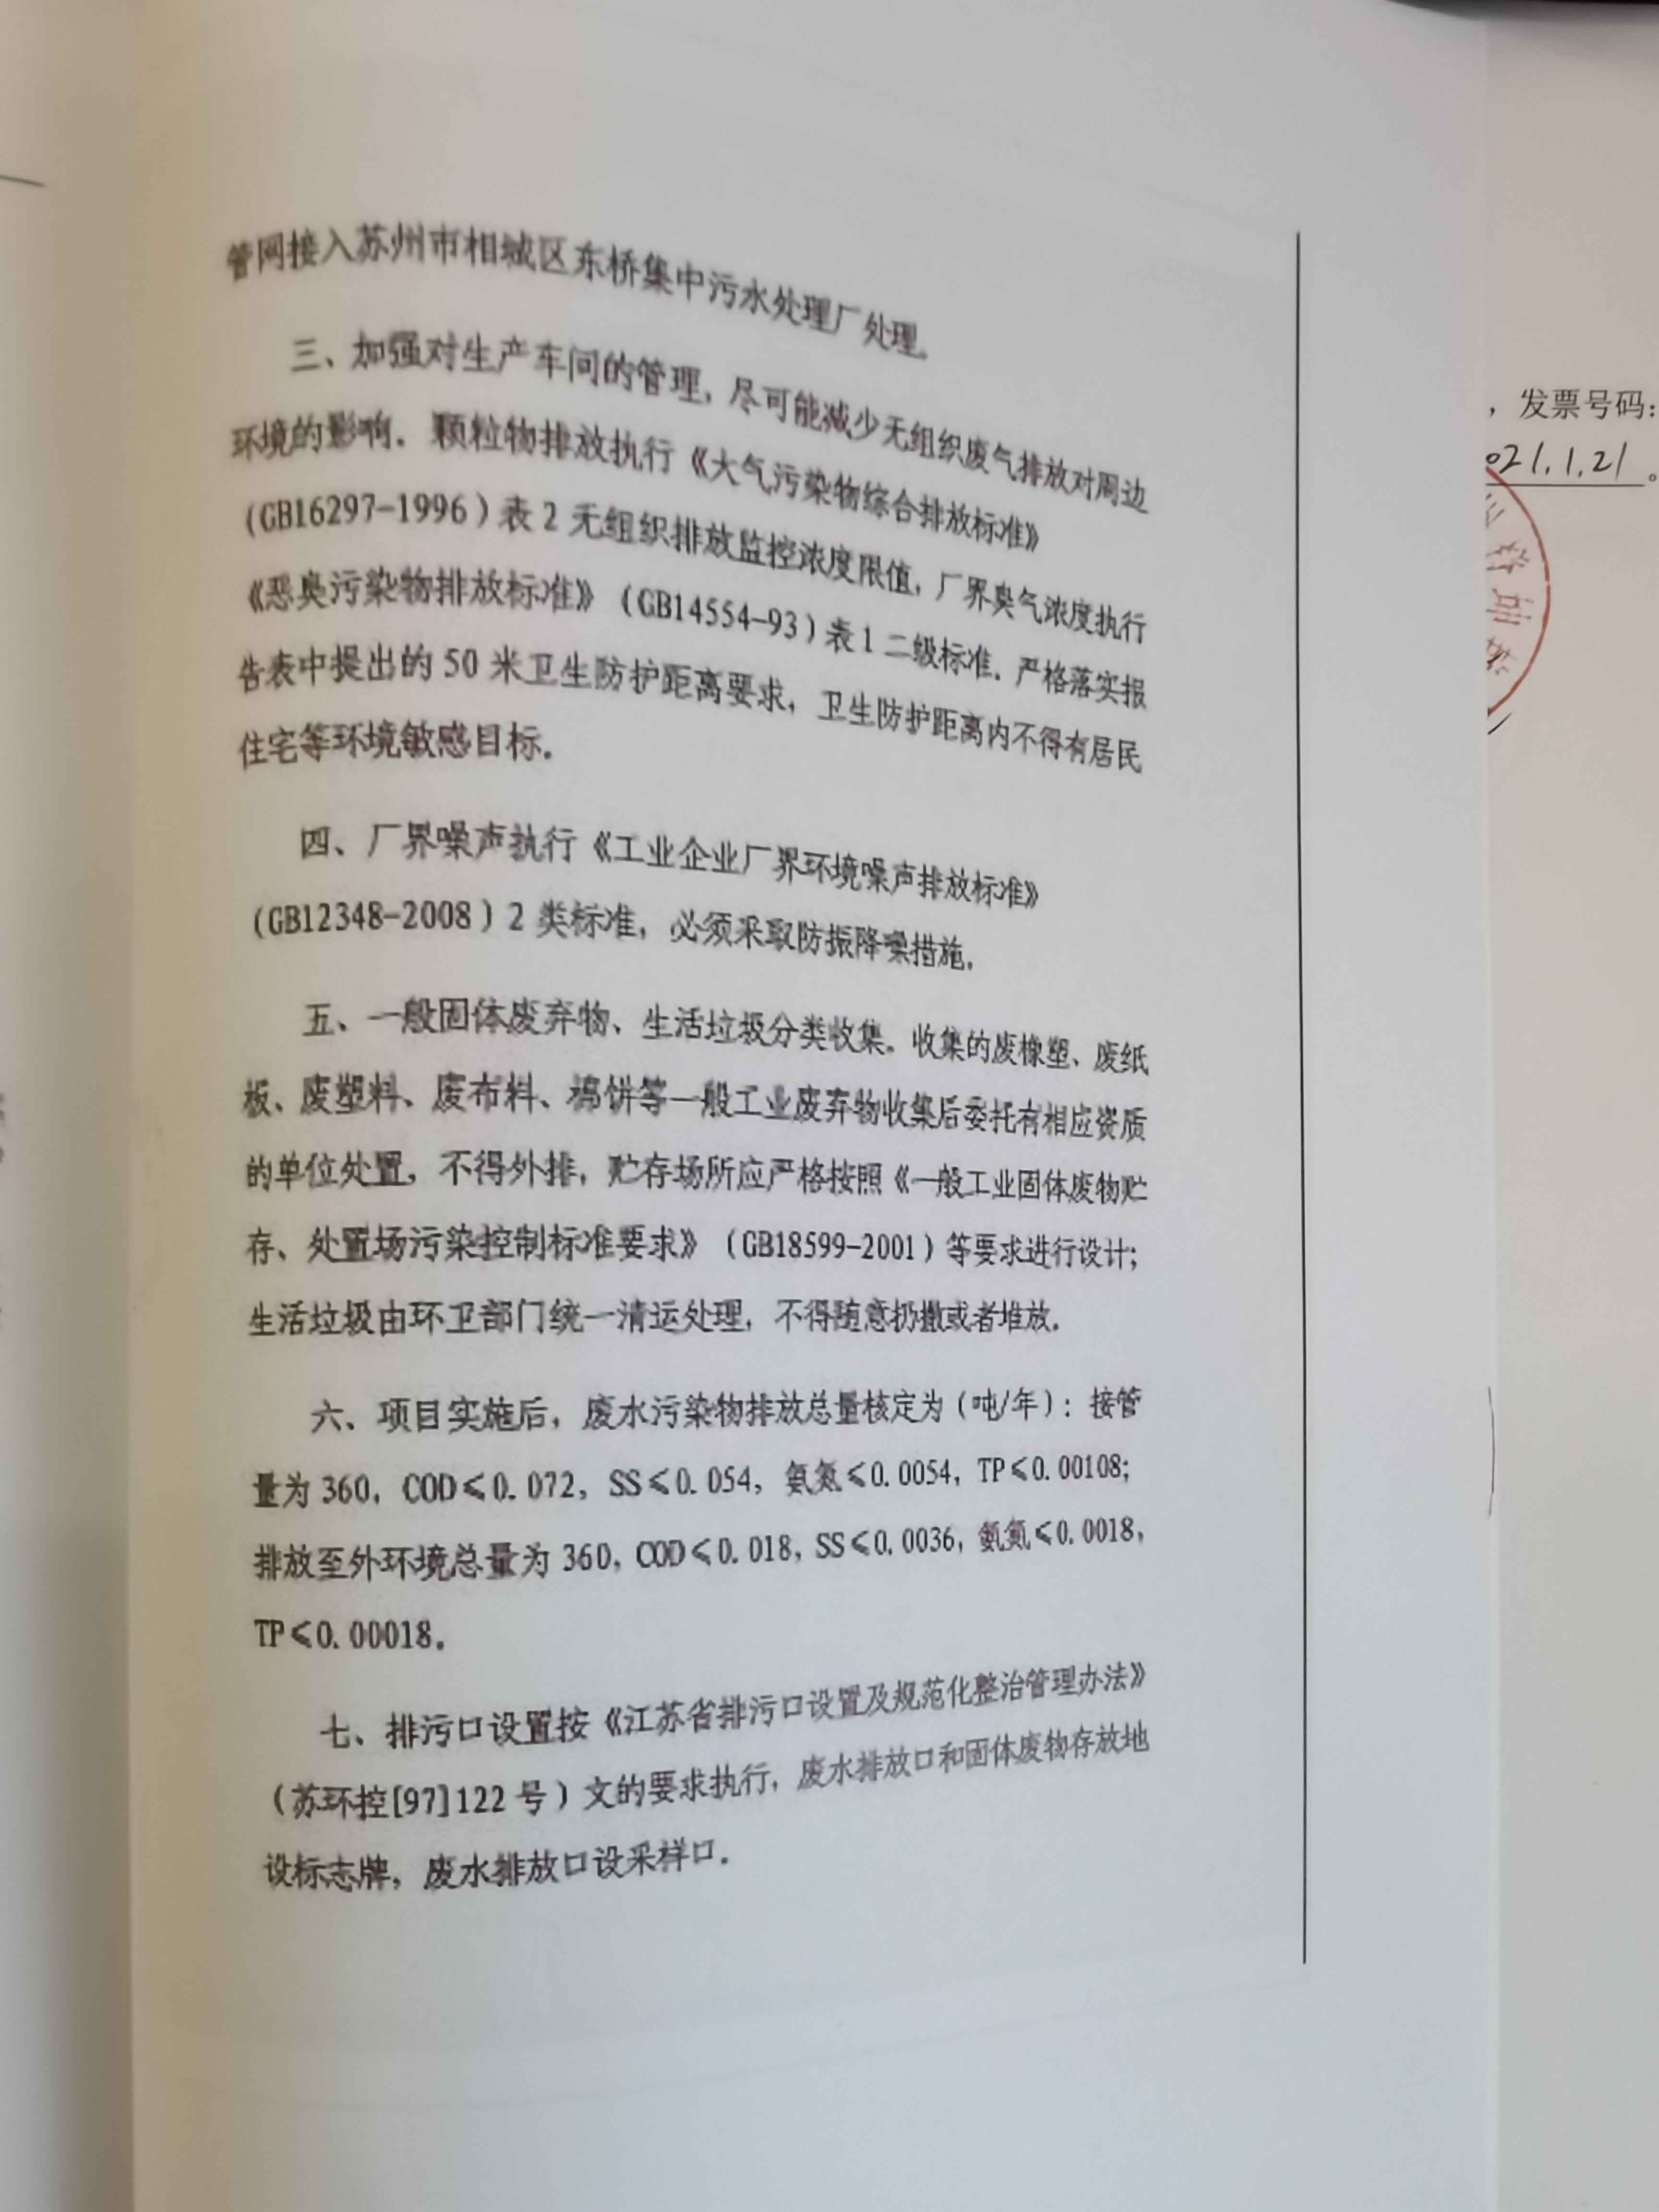 管网接入苏州市相城区东桥集中污水处理厂处理。
三、加强对生产车间的管理，尽可能减少无组织废气排放对周边
环境的影响。颗粒物排放执行《大气污染物综合排放标准》
（GB16297-1996）表2无组织排放监控浓度限值，厂界臭气浓度执行
《恶臭污染物排放标准》（GB14554-93）表1二级标准。严格落实报
告表中提出的50米卫生防护距离要求，卫生防护距离内不得有居民
住宅等环境敏感目标。
四、厂界噪声执行《工业企业厂界环境噪声排放标准》
（GB12348-2008）2类标准，必须采取防振降噪措施。
五、一般固体废弃物、生活垃圾分类收集。收集的废橡塑、废纸
板、废塑料、废布料、棉饼等一般工业废弃物收集后委托有相应资质
的单位处置，不得外排，贮存场所应严格按照《一般工业固体废物贮
存、处置场污染控制标准要求》（GB18599-2001）等要求进行设计；
生活垃圾由环卫部门统一清运处理，不得随意扔撒或者堆放。
六、项目实施后，废水污染物排放总量核定为（吨/年）：接管
量为360，COD≤0.072，SS≤0.054，氨氮≤0.0054，TP≤0.00108；
排放至外环境总量为360，COD≤0.018，SS≤0.0036，氨氮≤0.0018，
TP≤0.00018。
七、排污口设置按《江苏省排污口设置及规范化整治管理办法》
（苏环控[97]122号）文的要求执行，废水排放口和固体废物存放地
设标志牌，废水排放口设采样口。
，发票号码：
021.1.21。